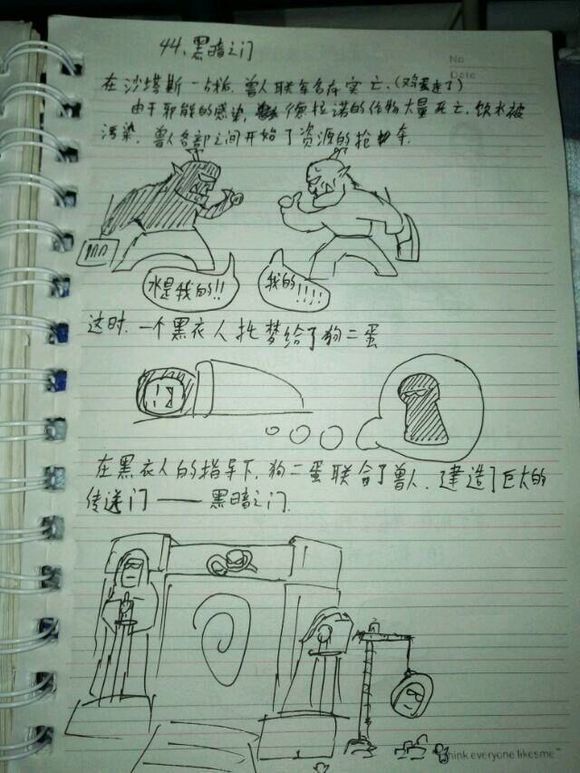 44、黑暗之门
No
Date
在沙塔斯一战后,兽人联军名存实亡、(鸡蛋走了)
由于邪能的感染,德拉诺的作物大量死亡、饮水被
污染、兽人各部之间开始了资源的抢夺.
水是我的!!
我的!!!!
这时,一个黑衣人托梦给了狗二蛋
在黑衣人的指导下,狗二蛋联合了兽人、建造了巨大的
传送门——黑暗之门.
think everyone likes me